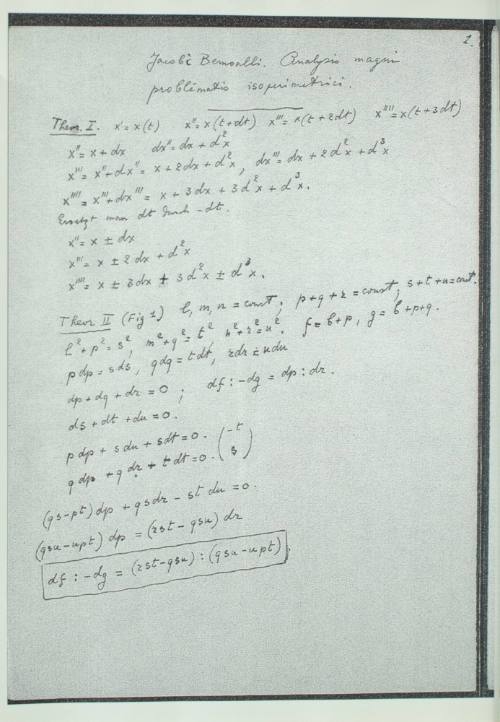 2.
Jacobi Bernoulli. Analysis magni
problematis isoperimetrici.
Theor. I. x' = x(t) x'' = x(t+dt) x''' = x(t+2dt) x'''' = x(t+3dt)
x'' = x+dx dx'' = dx + d²x
x''' = x''+dx'' = x+2dx+d²x, dx''' = dx+2d²x+d³x
x'''' = x'''+dx''' = x+3dx+3d²x+d³x.
Ersetzt man dt durch -dt.
x'' = x ± dx
x''' = x ± 2dx + d²x
x'''' = x ± 3dx + 3d²x ± d³x.
Theor II (Fig 1) l, m, n = const; p+q+r = const, s+t+u = const.
l²+p² = s², m²+q² = t², n²+r² = u². f = b+p, g = b+p+q.
p dp = s ds, q dq = t dt, r dr = u du
dp+dq+dr = 0; df : -dg = dp : dr.
ds+dt+du = 0.
p dp + s du + s dt = 0. (-t
q dp + q dr + t dt = 0. s)
(qs-pt) dp + qs dr - st du = 0.
(qsu-upt) dp = (rst-qsu) dr
df : -dg = (rst-qsu) : (qsu-upt).